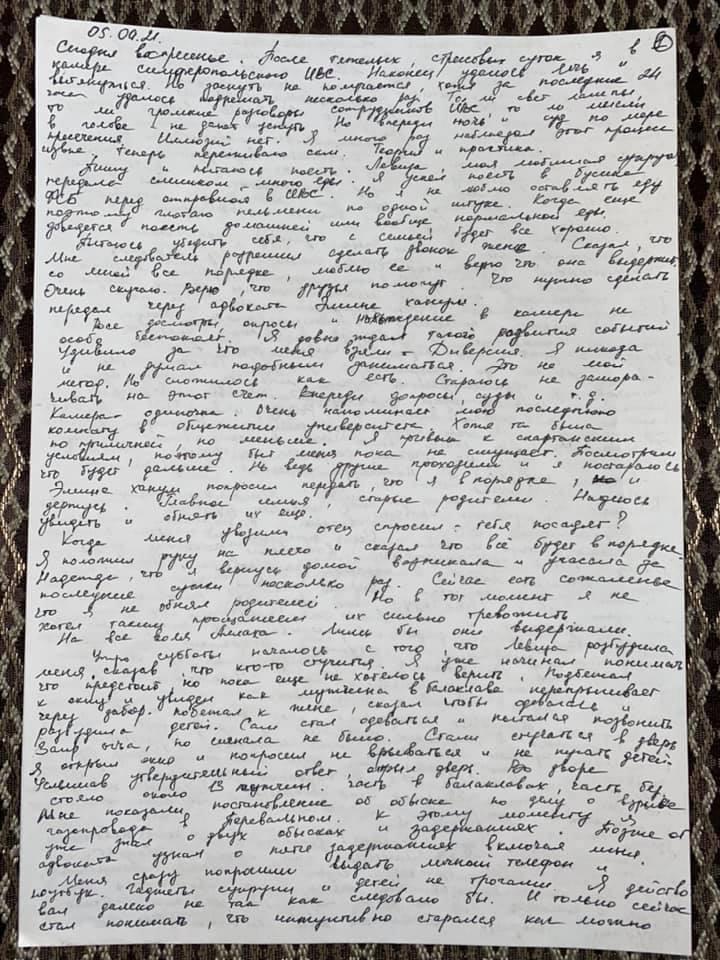 05.09.21.
1
Сегодня воскресенье. После тяжелых, стрессовых суток я в
камере симферопольского ИВС. Наконец удалось лечь и
вытянуться. Но заснуть не получается, хотя за последние 24
часа удалось подремать несколько раз. То ли свет лампы,
то ли громкие разговоры сотрудников ИВС, то ли мысли
в голове не дают уснуть. Но впереди ночь и суд по мере
пресечения. Иллюзий нет. Я много раз наблюдал этот процесс
извне. Теперь переживаю сам. Теория и практика.
Пишу и пытаюсь поесть. Левиза моя любимая супруга
передала слишком много еды. Я успел поесть в бусике
ФСБ перед отправкой в ИВС. Но я не люблю оставлять еду
поэтому глотаю пельмени по одной штуке. Когда еще
доведется поесть домашней или вообще нормальной еды.
Пытаюсь убедить себя, что с семьей будет все хорошо.
Мне следователь разрешил сделать звонок жене. Сказал, что
со мной все порядке, люблю ее и верю что она выдержит.
Очень скучаю. Верю, что друзья помогут. Что нужно сделать
передал через адвоката Эмине ханум.
Все досмотры, опросы и нахождение в камере не
особо беспокоят. Я давно ждал такого развития событий
Удивило за что меня взяли - Диверсия. Я никогда
и не думал подобным заниматься. Это не мой
метод. Но сложилось как есть. Стараюсь не замора-
чивать на этот счет. Впереди допросы, суды и т.д.
Камера - одиночка. Очень напоминает мою последнюю
комнату в общежитии университета. Хотя та была
по приличней, но меньше. Я привык к спартанским
условиям, поэтому быт меня пока не смущает. Посмотрим
что будет дальше. Но ведь другие проходили и я постараюсь
Эмине ханум попросил передать, что я в порядке, и
держусь. Главное семья, старые родители. Надеюсь
увидеть и обнять их еще.
Когда меня увозили отец спросил - тебя посадят?
Я положил руку на плечо и сказал что всё будет в порядке.
Надежда, что я вернусь домой возникала и угасала за
последние сутки несколько раз. Сейчас есть сожаленье
что я не обнял родителей. Но в тот момент я не
хотел таким прощанием их сильно тревожить.
На все воля Аллаха. Лишь бы они выдержали.
Утро субботы началось с того, что Левиза разбудила
меня, сказав, что кто-то стучится. Я уже начинал понимать
что предстоит, но пока еще не хотелось верить. Подбежал
к окну и увидел как мужчина в балаклаве перепрыгивает
через забор. Побежал к жене, сказал чтобы одевалась и
разбудила детей. Сам стал одеваться и пытался позвонить
Заир оъча, но сигнала не было. Стали стучаться в дверь
Я открыл окно и попросил не врываться и не пугать детей.
Услышав утвердительный ответ, открыл дверь. Во дворе
стояло около 15 мужчин. Часть в балаклавах, часть без
Мне показали постановление об обыске по делу о взрыве
газопровода в Перевальном. К этому моменту я
уже знал о двух обысках и задержаниях. Позже от
адвоката узнал о пяти задержаниях включая меня.
Меня сразу попросили выдать личный телефон и
ноутбук. Гаджеты супруги и детей не трогали. Я действо
вал далеко не так как следовало бы. И только сейчас
стал понимать, что интуитивно старался как можно